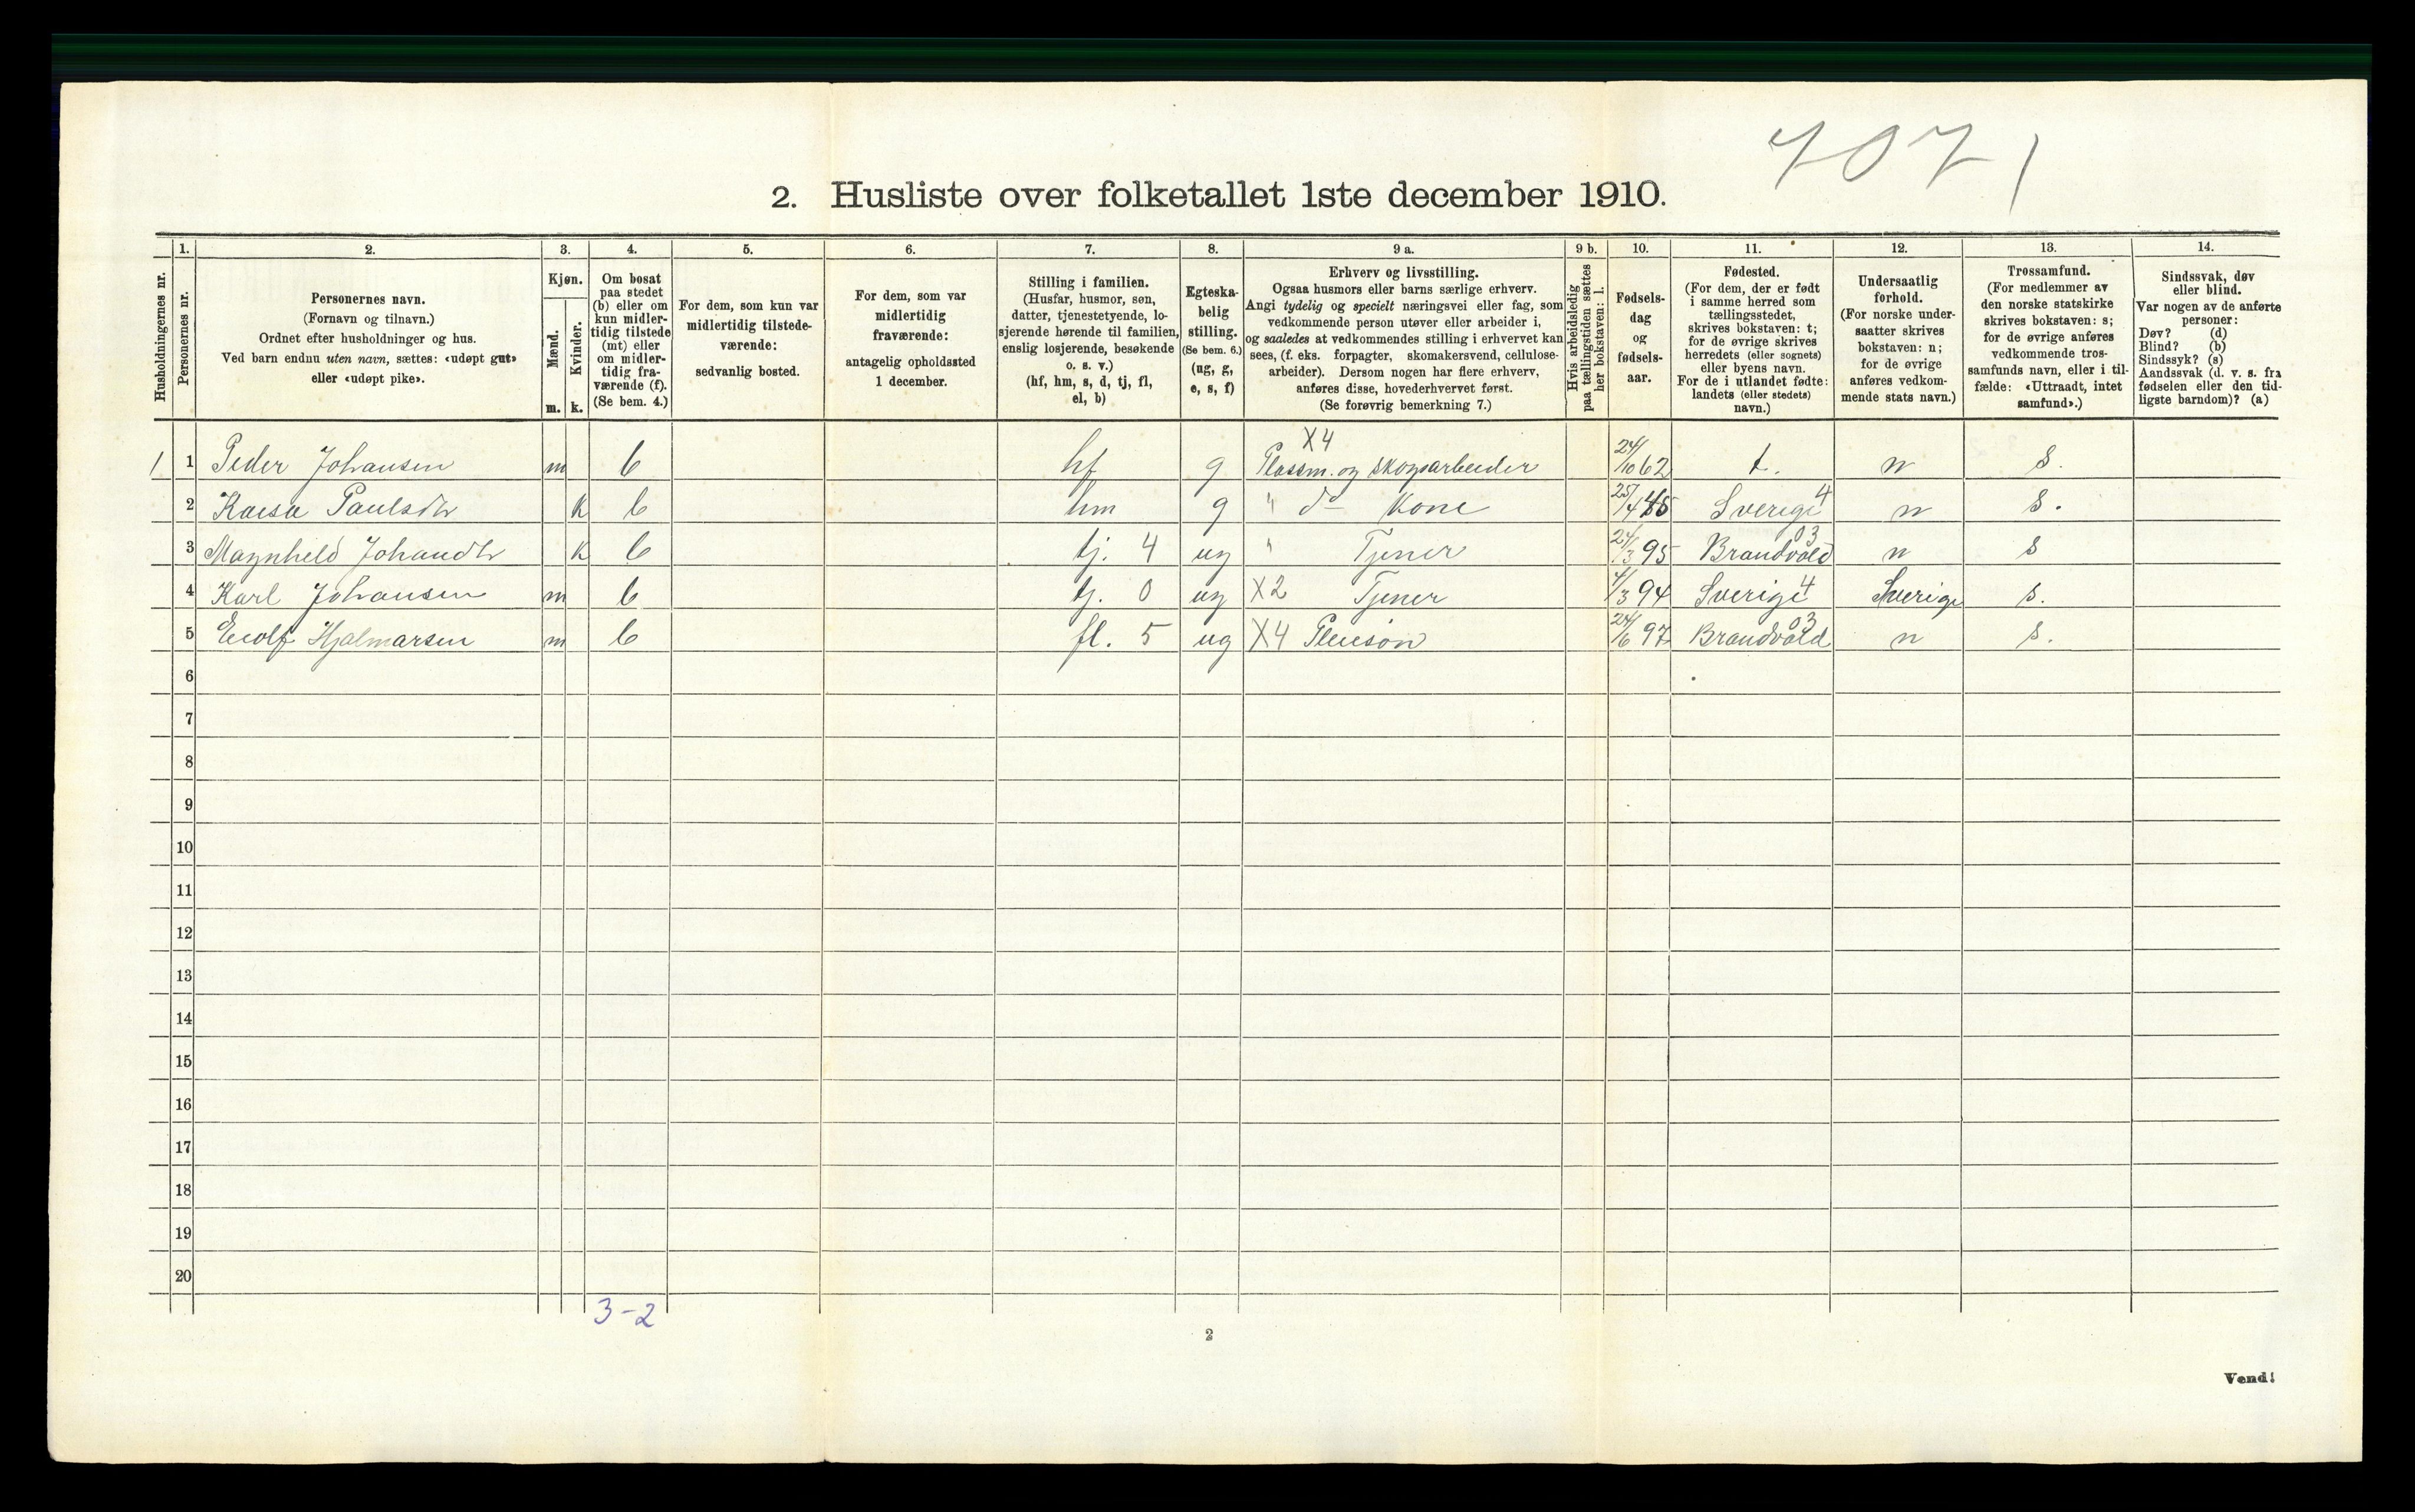 7071
2. Husliste over folketallet 1ste december 1910.
Husholdningernes nr.
1.
Personernes nr.
2.
Personernes navn.
(Fornavn og tilnavn.)
Ordnet efter husholdninger og hus.
Ved barn endnu uten navn, sættes: «udøpt gut»
eller «udøpt pike».
3.
Kjøn.
Mænd.
m.
Kvinder.
k.
4.
Om bosat
paa stedet
(b) eller om
kun midler-
tidig tilstede
(mt) eller
om midler-
tidig fra-
værende (f).
(Se bem. 4.)
5.
For dem, som kun var
midlertidig tilstede-
værende:
sedvanlig bosted.
6.
For dem, som var
midlertidig
fraværende:
antagelig opholdssted
1 december.
7.
Stilling i familien.
(Husfar, husmor, søn,
datter, tjenestetyende, lo-
sjerende hørende til familien,
enslig losjerende, besøkende
o. s. v.)
(hf, hm, s, d, tj, fl,
el, b)
8.
Egteska-
belig
stilling.
(Se bem. 6.)
(ug, g,
e, s, f)
9 a.
Erhverv og livsstilling.
Ogsaa husmors eller barns særlige erhverv.
Angi tydelig og specielt næringsvei eller fag, som
vedkommende person utøver eller arbeider i,
og saaledes at vedkommendes stilling i erhvervet kan
sees, (f. eks. forpagter, skomakersvend, cellulose-
arbeider). Dersom nogen har flere erhverv,
anføres disse, hovederhvervet først.
(Se forøvrig bemerkning 7.)
9 b.
Hvis arbeidsledig
paa tællingstiden sættes
her bokstaven: l.
10.
Fødsels-
dag
og
fødsels-
aar.
11.
Fødested.
(For dem, der er født
i samme herred som
tællingsstedet,
skrives bokstaven: t;
for de øvrige skrives
herredets (eller sognets)
eller byens navn.
For de i utlandet fødte:
landets (eller stedets)
navn.)
12.
Undersaatlig
forhold.
(For norske under-
saatter skrives
bokstaven: n;
for de øvrige
anføres vedkom-
mende stats navn.)
13.
Trossamfund.
(For medlemmer av
den norske statskirke
skrives bokstaven: s;
for de øvrige anføres
vedkommende tros-
samfunds navn, eller i til-
fælde: «Uttraadt, intet
samfund».)
14.
Sindssvak, døv
eller blind.
Var nogen av de anførte
personer:
Døv? (d)
Blind? (b)
Sindssyk? (s)
Aandssvak (d. v. s. fra
fødselen eller den tid-
ligste barndom)? (a)
X4
1 1 Peder Johansen m b hf g Plassm. og skogsarbeider 24/10 62 t. n s.
2 Kaisa Paulsdtr k b hm g " do Kone 25/4 Sverige 4 n s.
3 Magnhild Johandtr k b tj. 4 ug " Tjener 24/3 95 Brandvold 03 n s
4 Karl Johansen m b tj. 0 ug X2 Tjener 4/3 94 Sverige 4 Sverige s.
5 Hjalmarsen m b fl. 5 ug X4 Pleiesøn 24/6 97 Brandvold 03 n s.
6
7
8
9
10
11
12
13
14
15
16
17
18
19
20
3-2
2
Vend!